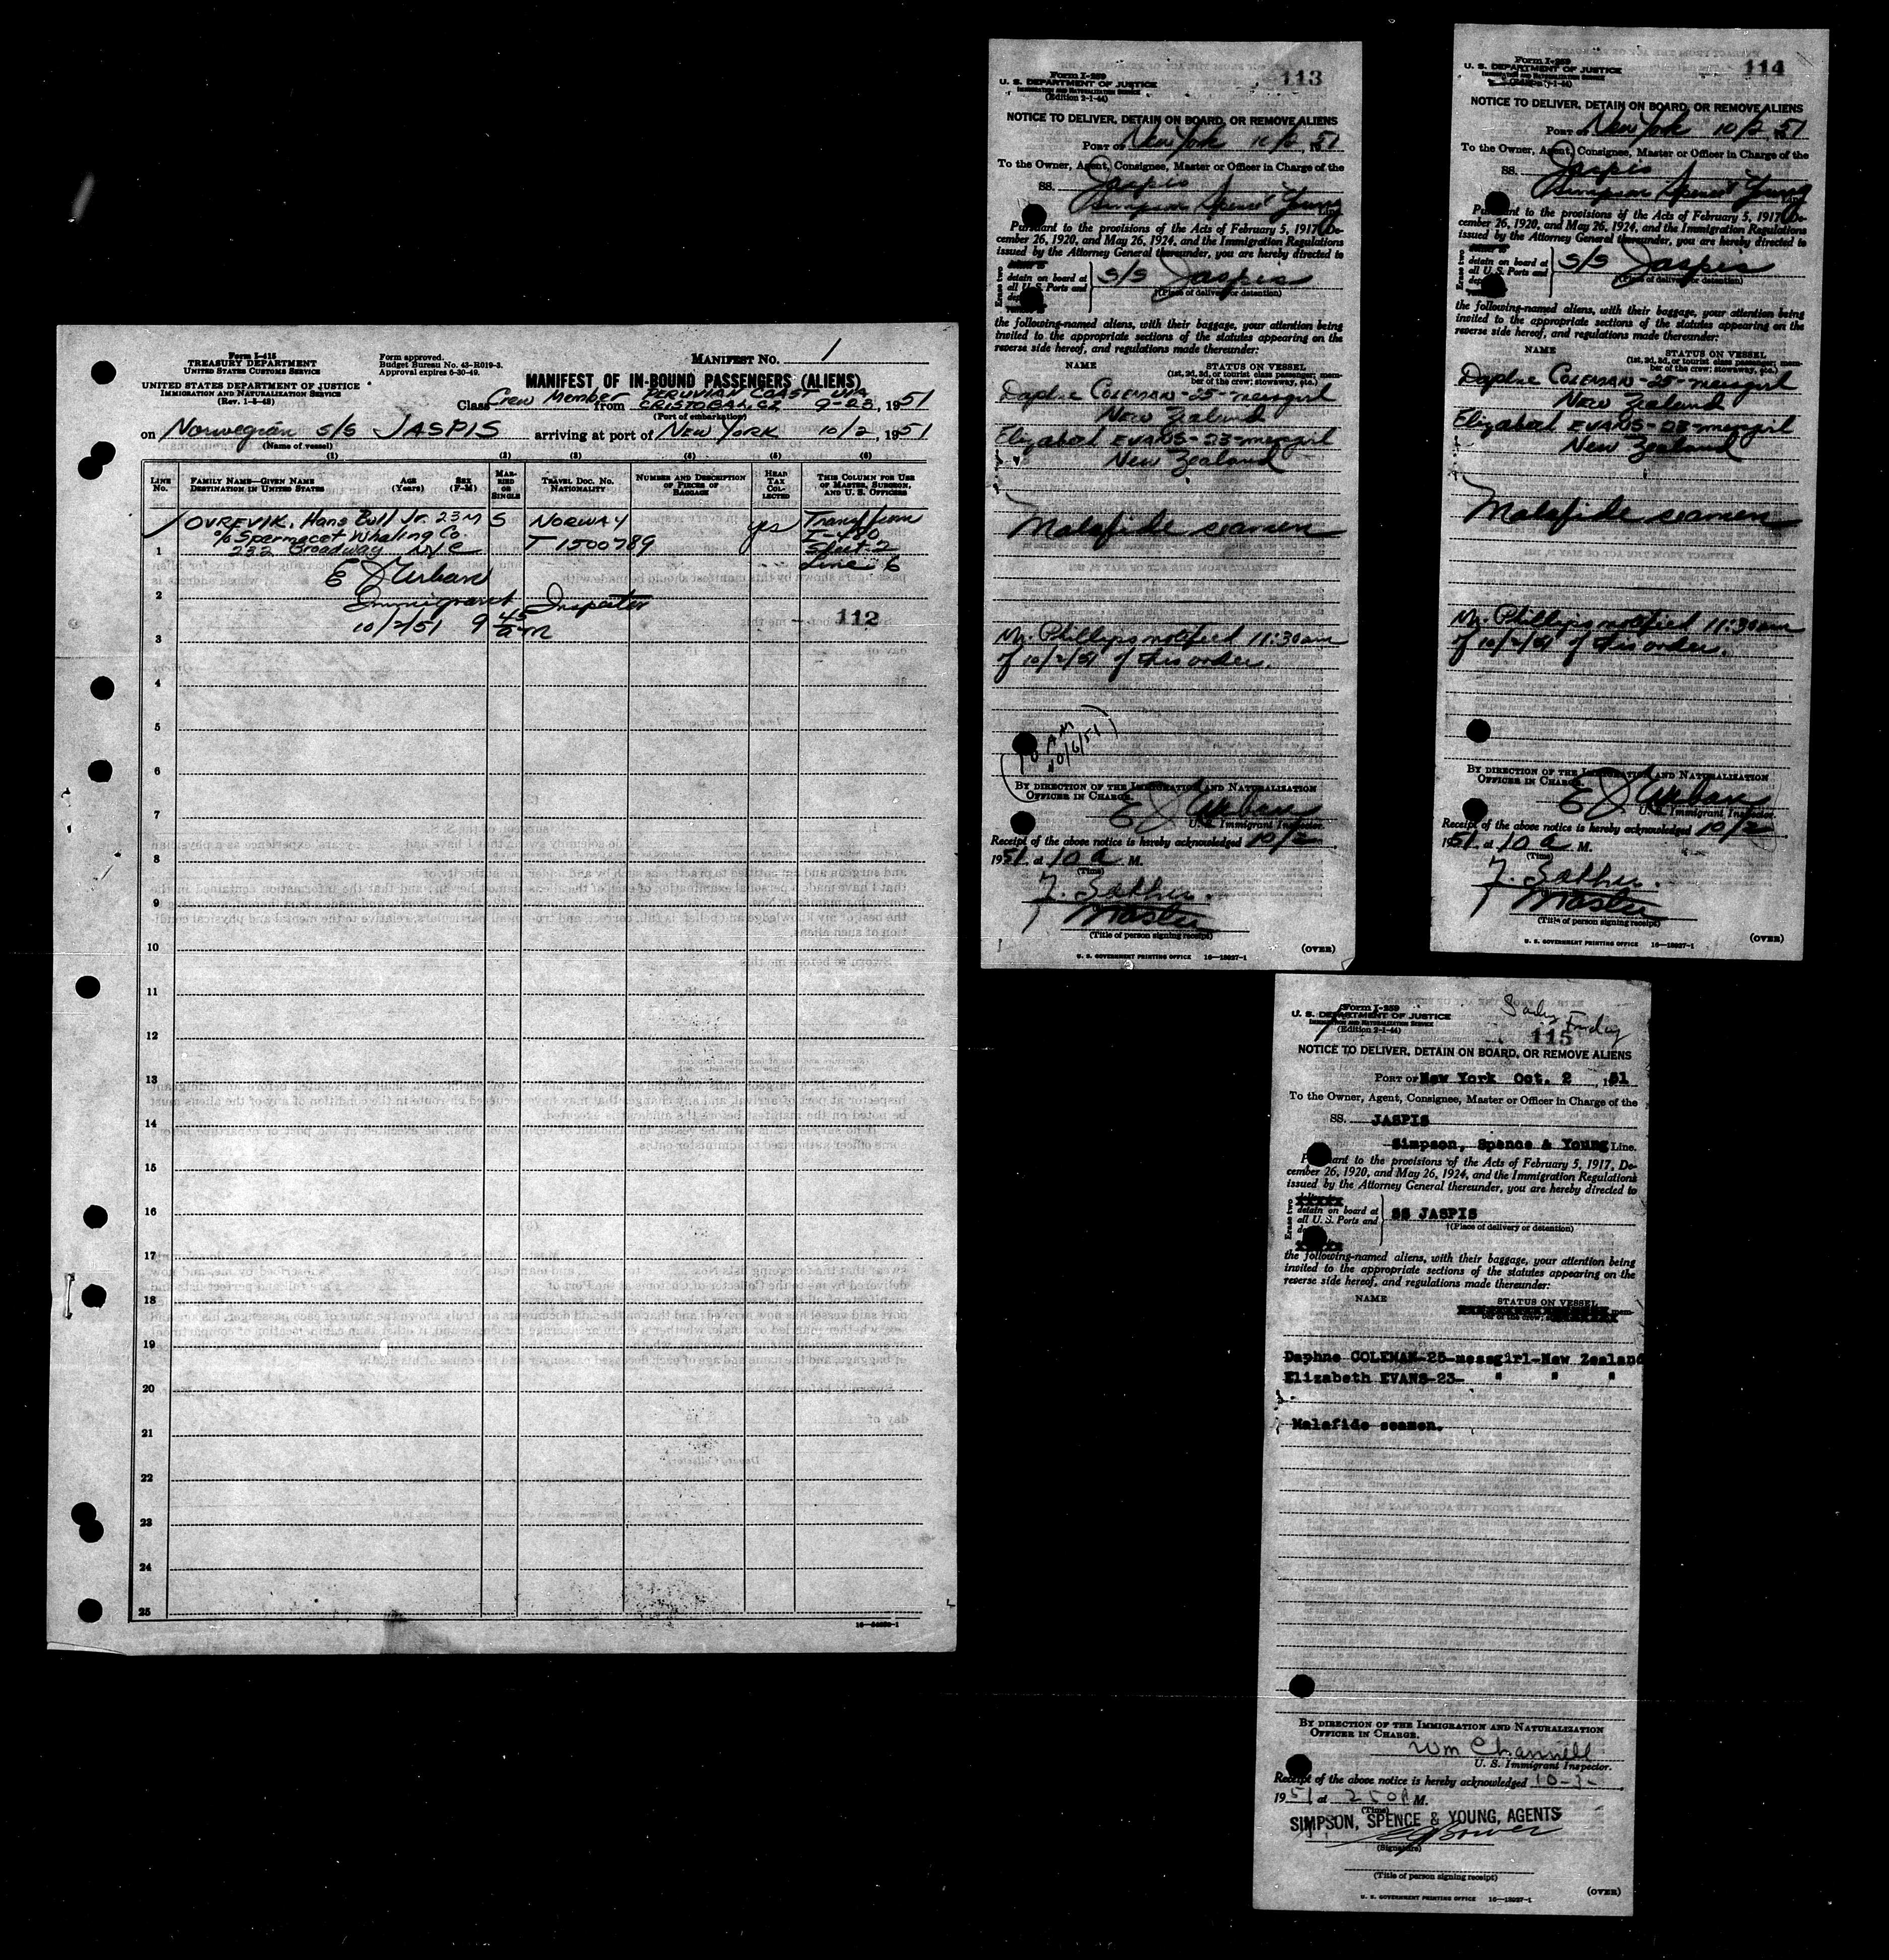 Form I-415
TREASURY DEPARTMENT
UNITED STATES CUSTOMS SERVICE
UNITED STATES DEPARTMENT OF JUSTICE
IMMIGRATION AND NATURALIZATION SERVICE
(Rev. 1-5-48)
Form approved.
Budget Bureau No. 43-R019-3.
Approval expires 6-30-49.
MANIFEST NO. 1
MANIFEST OF IN-BOUND PASSENGERS (ALIENS)
Class Crew Member from PERUVIAN COAST VIA CRISTOBAL, CZ 9-23, 1951
(Port of embarkation)
on Norwegian S/S JASPIS arriving at port of NEW YORK 10/2, 1951
(Name of vessel)
(1) (2) (3) (4) (5) (6)
LINE No.
FAMILY NAME—GIVEN NAME
DESTINATION IN UNITED STATES
AGE (Years)
SEX (F-M)
MARRIED OR SINGLE
TRAVEL DOC. NO. NATIONALITY
NUMBER AND DESCRIPTION OF PIECES OF BAGGAGE
HEAD TAX COLLECTED
THIS COLUMN FOR USE OF MASTER, SURGEON, AND U. S. OFFICERS
OVREVIK, Hans Bull Jr. 23 M S NORWAY yes Transf from
c/o Spermacet Whaling Co. T 1500789 I-480
1 232 Broadway NYC Sheet 2
Line 6
E J Urban
2 Immigrant Inspector
10/2/51 9 45 am 112
3
4
5
6
7
8
9
10
11
12
13
14
15
16
17
18
19
20
21
22
23
24
25
Form I-259
U. S. DEPARTMENT OF JUSTICE
IMMIGRATION AND NATURALIZATION SERVICE
(Edition 2-1-44)
113
NOTICE TO DELIVER, DETAIN ON BOARD, OR REMOVE ALIENS
PORT OF New York 10/2, 1951
To the Owner, Agent, Consignee, Master or Officer in Charge of the
SS. Jaspis
Simpson Spence & Young Line.
Pursuant to the provisions of the Acts of February 5, 1917, De-
cember 26, 1920, and May 26, 1924, and the Immigration Regulations
issued by the Attorney General thereunder, you are hereby directed to
Erase two
detain on board at
all U. S. Ports and
S/S Jaspis
(Place of delivery or detention)
the following-named aliens, with their baggage, your attention being
invited to the appropriate sections of the statutes appearing on the
reverse side hereof, and regulations made thereunder:
NAME STATUS ON VESSEL
(1st, 2d, 3d, or tourist class passenger; mem-
ber of the crew; stowaway, etc.)
Daphne COLEMAN-25-messgirl
New Zealand
Elizabeth EVANS-23-messgirl
New Zealand
Malafide seamen
Mr. Phillips notified 11:30 am
of 10/2/51 of this order.
BY DIRECTION OF THE IMMIGRATION AND NATURALIZATION
OFFICER IN CHARGE.
E J Urban
U. S. Immigrant Inspector.
Receipt of the above notice is hereby acknowledged 10/2
1951 at 10 a M.
(Time)
F. Sather
Master
(Title of person signing receipt)
(OVER)
U. S. GOVERNMENT PRINTING OFFICE 16—18027-1
Form I-259
U. S. DEPARTMENT OF JUSTICE
IMMIGRATION AND NATURALIZATION SERVICE
114
NOTICE TO DELIVER, DETAIN ON BOARD, OR REMOVE ALIENS
PORT OF New York 10/2, 1951
To the Owner, Agent, Consignee, Master or Officer in Charge of the
SS. Jaspis
Simpson Spence & Young
Pursuant to the provisions of the Acts of February 5, 1917, De-
cember 26, 1920, and May 26, 1924, and the Immigration Regulations
issued by the Attorney General thereunder, you are hereby directed to
Erase two
detain on board at
all U. S. Ports and
S/S Jaspis
(Place of delivery or detention)
the following-named aliens, with their baggage, your attention being
invited to the appropriate sections of the statutes appearing on the
reverse side hereof, and regulations made thereunder:
NAME STATUS ON VESSEL
(1st, 2d, 3d, or tourist class passenger; mem-
ber of the crew; stowaway, etc.)
Daphne COLEMAN-25-messgirl
New Zealand
Elizabeth EVANS-23-messgirl
New Zealand
Malafide seamen
Mr. Phillips notified 11:30 am
of 10/2/51 of this order.
BY DIRECTION OF THE IMMIGRATION AND NATURALIZATION
OFFICER IN CHARGE.
E J Urban
U. S. Immigrant Inspector.
Receipt of the above notice is hereby acknowledged 10/2
1951 at 10 a M.
(Time)
F. Sather
Master
(Title of person signing receipt)
(OVER)
U. S. GOVERNMENT PRINTING OFFICE 16—18027-1
Form I-259
U. S. DEPARTMENT OF JUSTICE
IMMIGRATION AND NATURALIZATION SERVICE
(Edition 2-1-44)
Friday
115
NOTICE TO DELIVER, DETAIN ON BOARD, OR REMOVE ALIENS
PORT OF New York Oct. 2, 1951
To the Owner, Agent, Consignee, Master or Officer in Charge of the
SS. JASPIS
Simpson, Spence & Young Line.
Pursuant to the provisions of the Acts of February 5, 1917, De-
cember 26, 1920, and May 26, 1924, and the Immigration Regulations
issued by the Attorney General thereunder, you are hereby directed to
Erase two
detain on board at
all U. S. Ports and
SS JASPIS
(Place of delivery or detention)
the following-named aliens, with their baggage, your attention being
invited to the appropriate sections of the statutes appearing on the
reverse side hereof, and regulations made thereunder:
NAME STATUS ON VESSEL
mem-
ber of the crew;
Daphne COLEMAN-25-messgirl-New Zealand
Elizabeth EVANS-23- " " "
Malafide seamen.
BY DIRECTION OF THE IMMIGRATION AND NATURALIZATION
OFFICER IN CHARGE.
Wm Channell
U. S. Immigrant Inspector.
Receipt of the above notice is hereby acknowledged 10-3-
1951 at 250P M.
(Time)
SIMPSON, SPENCE & YOUNG, AGENTS
(Signature)
(Title of person signing receipt)
(OVER)
U. S. GOVERNMENT PRINTING OFFICE 16—18027-1